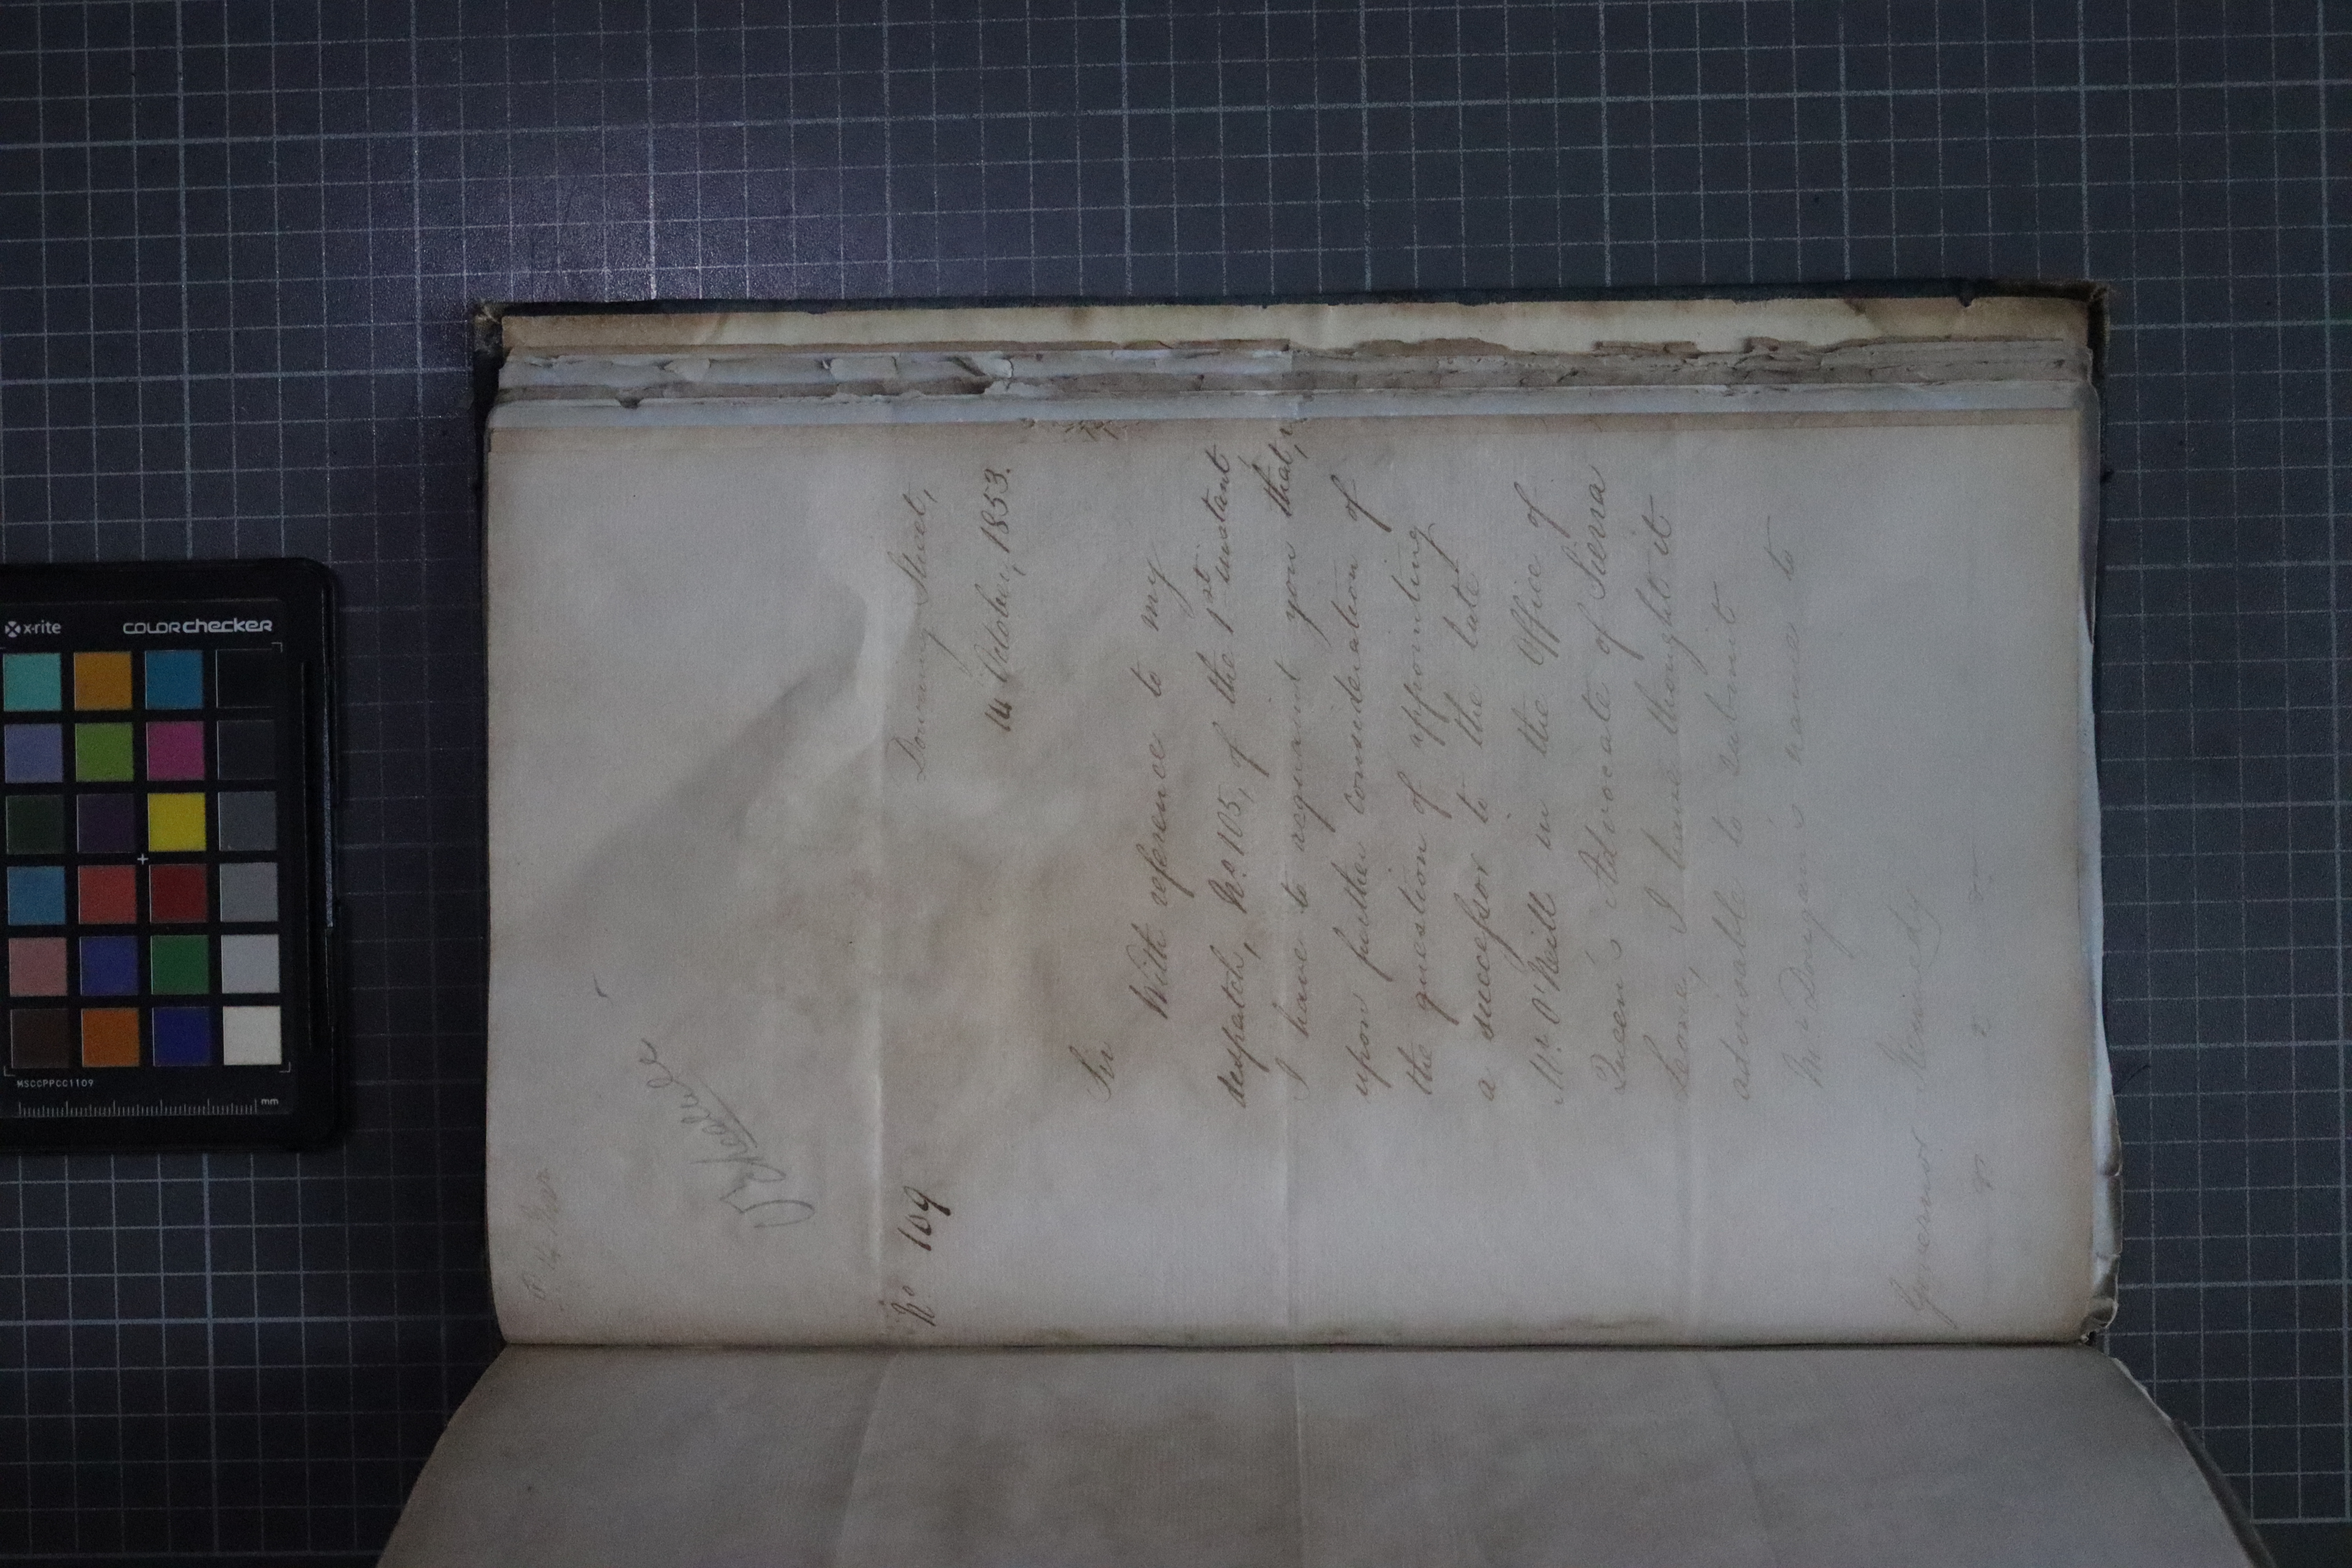 No 109
Downing Street,
14 October, 1853.
Sir
With reference to my
despatch, No. 105, of the 1st instant
I have to acquaint you that,
upon further consideration of
the question of appointing
a successor to the late
Mr. O'Neill in the Office of
Queen's Advocate of Sierra
Leone, I have thought it
advisable to submit
Mr. Dougan's name to
Governor Kennedy
x-rite COLORchecker
MSCCPPCC1109
mm